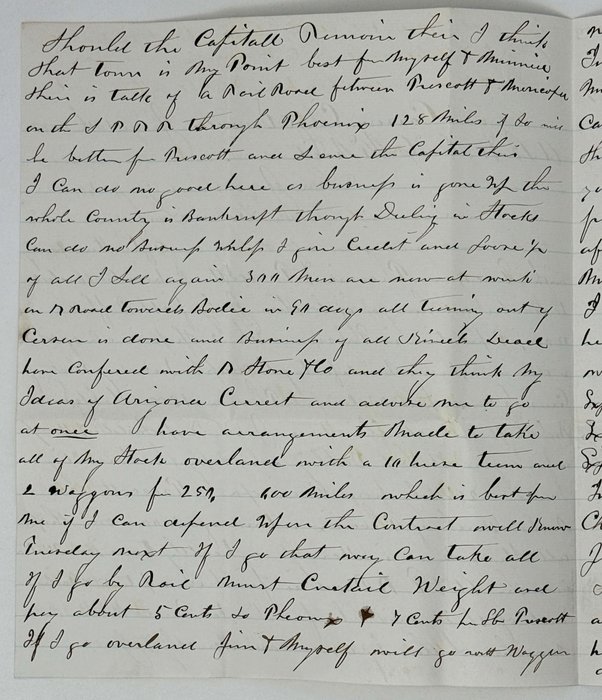 Should the Capitall Remain thier I think
that town is My Point best for Myself & Minnie
thier is talk of a Rail Road between Prescott & Maricopa
on the S P R R through Phoenix 128 Miles if So will
be better for Prescott and Secure the Capital thier
I Can do no good here as business is gone up the
whole County is Bankrupt through Dealing in Stocks
Can do no business unless I give Credit and Loose ½
of all I Sell again 300 Men are now at work
on R Road towards Bodie in 90 days all teaming out of
Carson is done and Business of all Kinds Dead
have Confered with R Stone & Co and they think My
Ideas of Arizona Correct and advise me to go
at once I have arrangements Made to take
all of My Stock overland with a 10 horse team and
2 Waggons for 250. 600 Miles which is best for
me if I Can depend upon the Contract will Know
Tuesday next If I go that way Can take all
If I go by Rail Must Curtail Weight and
pay about 5 Cents to Pheonix & 7 Cents per lb Prescott
If I go overland Jim & Myself will go with Waggon